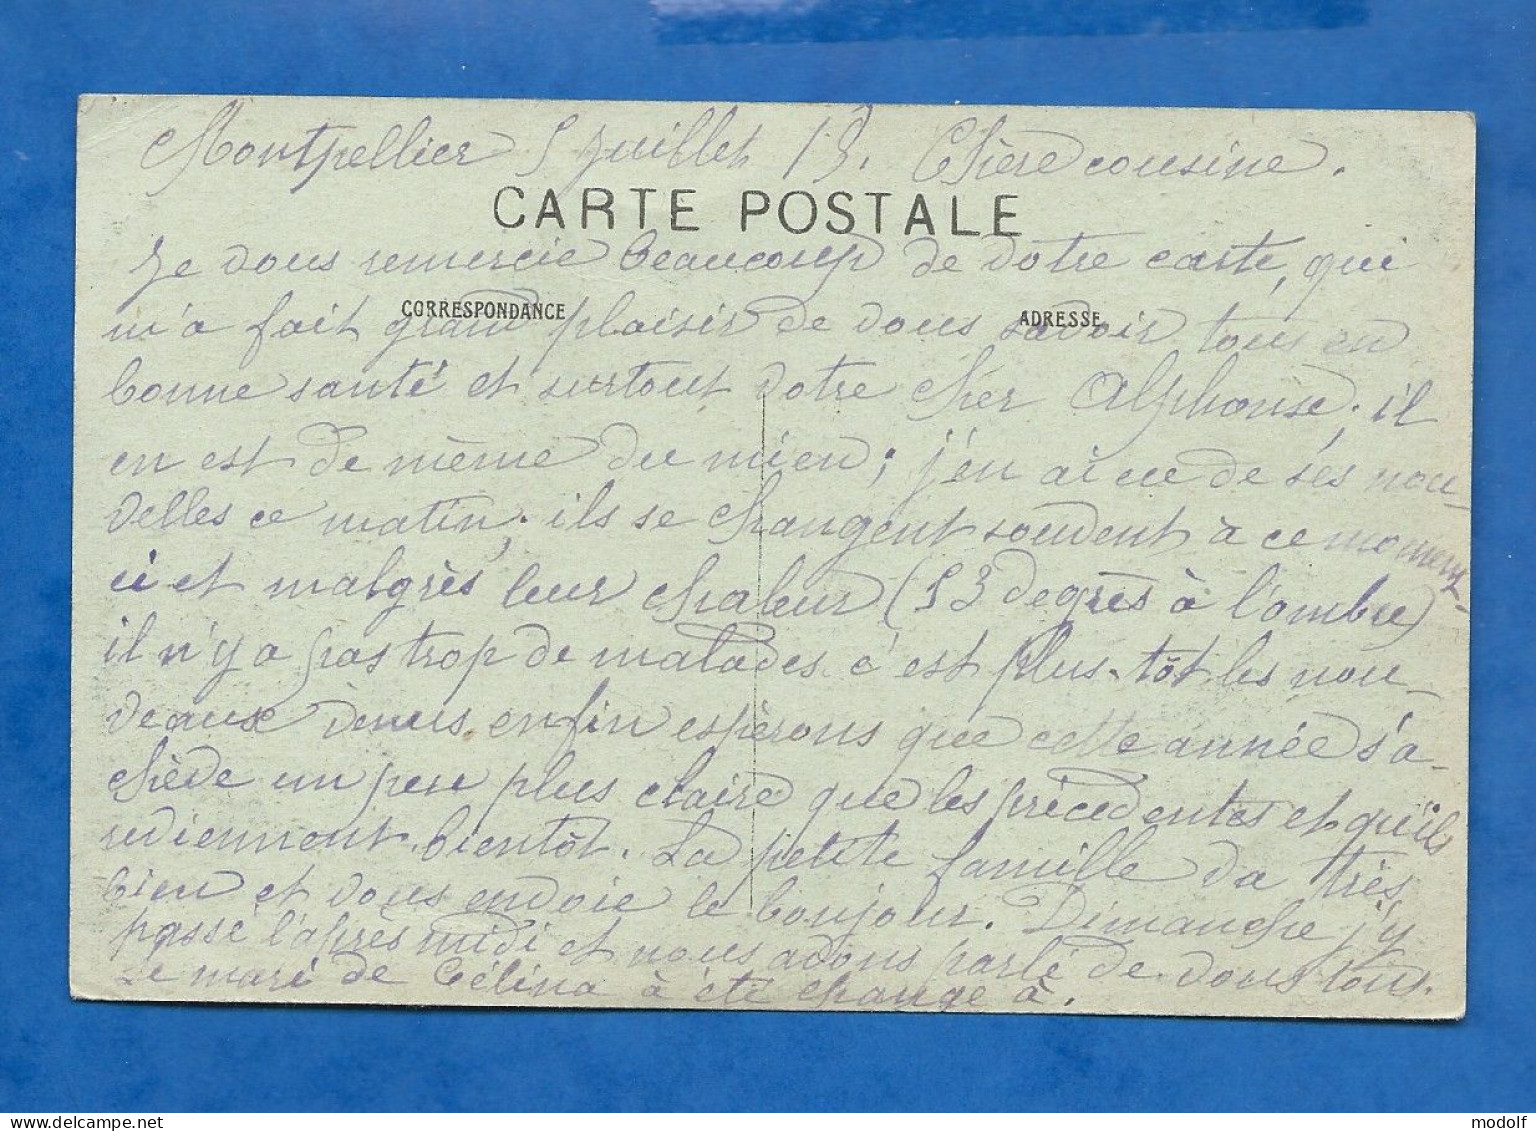 Montpellier 5 juillet 18. Chère cousine.
CARTE POSTALE
Je vous remercie beaucoup de votre carte, qui
CORRESPONDANCE
ADRESSE
m'a fait grand plaisir de vous savoir tous en
bonne santé et surtout votre cher Alphonse; il
en est de même du mien; j'en ai eu de ses nou-
velles ce matin; ils se changent souvent à ce moment-
ci et malgrès leur chaleur (53 degrès à l'ombre)
il n'y a pas trop de malades c'est plus-tôt les nou-
veaux venus, enfin espèrons que cette année s'a-
chève un peu plus claire que les précédentes et qu'ils
reviennent bientôt. La petite famille va très
bien et vous envoie le bonjour. Dimanche j'y
passé l'après midi et nous avons parlé de vous tous.
Le mari de Célina à été changé à.
modolf